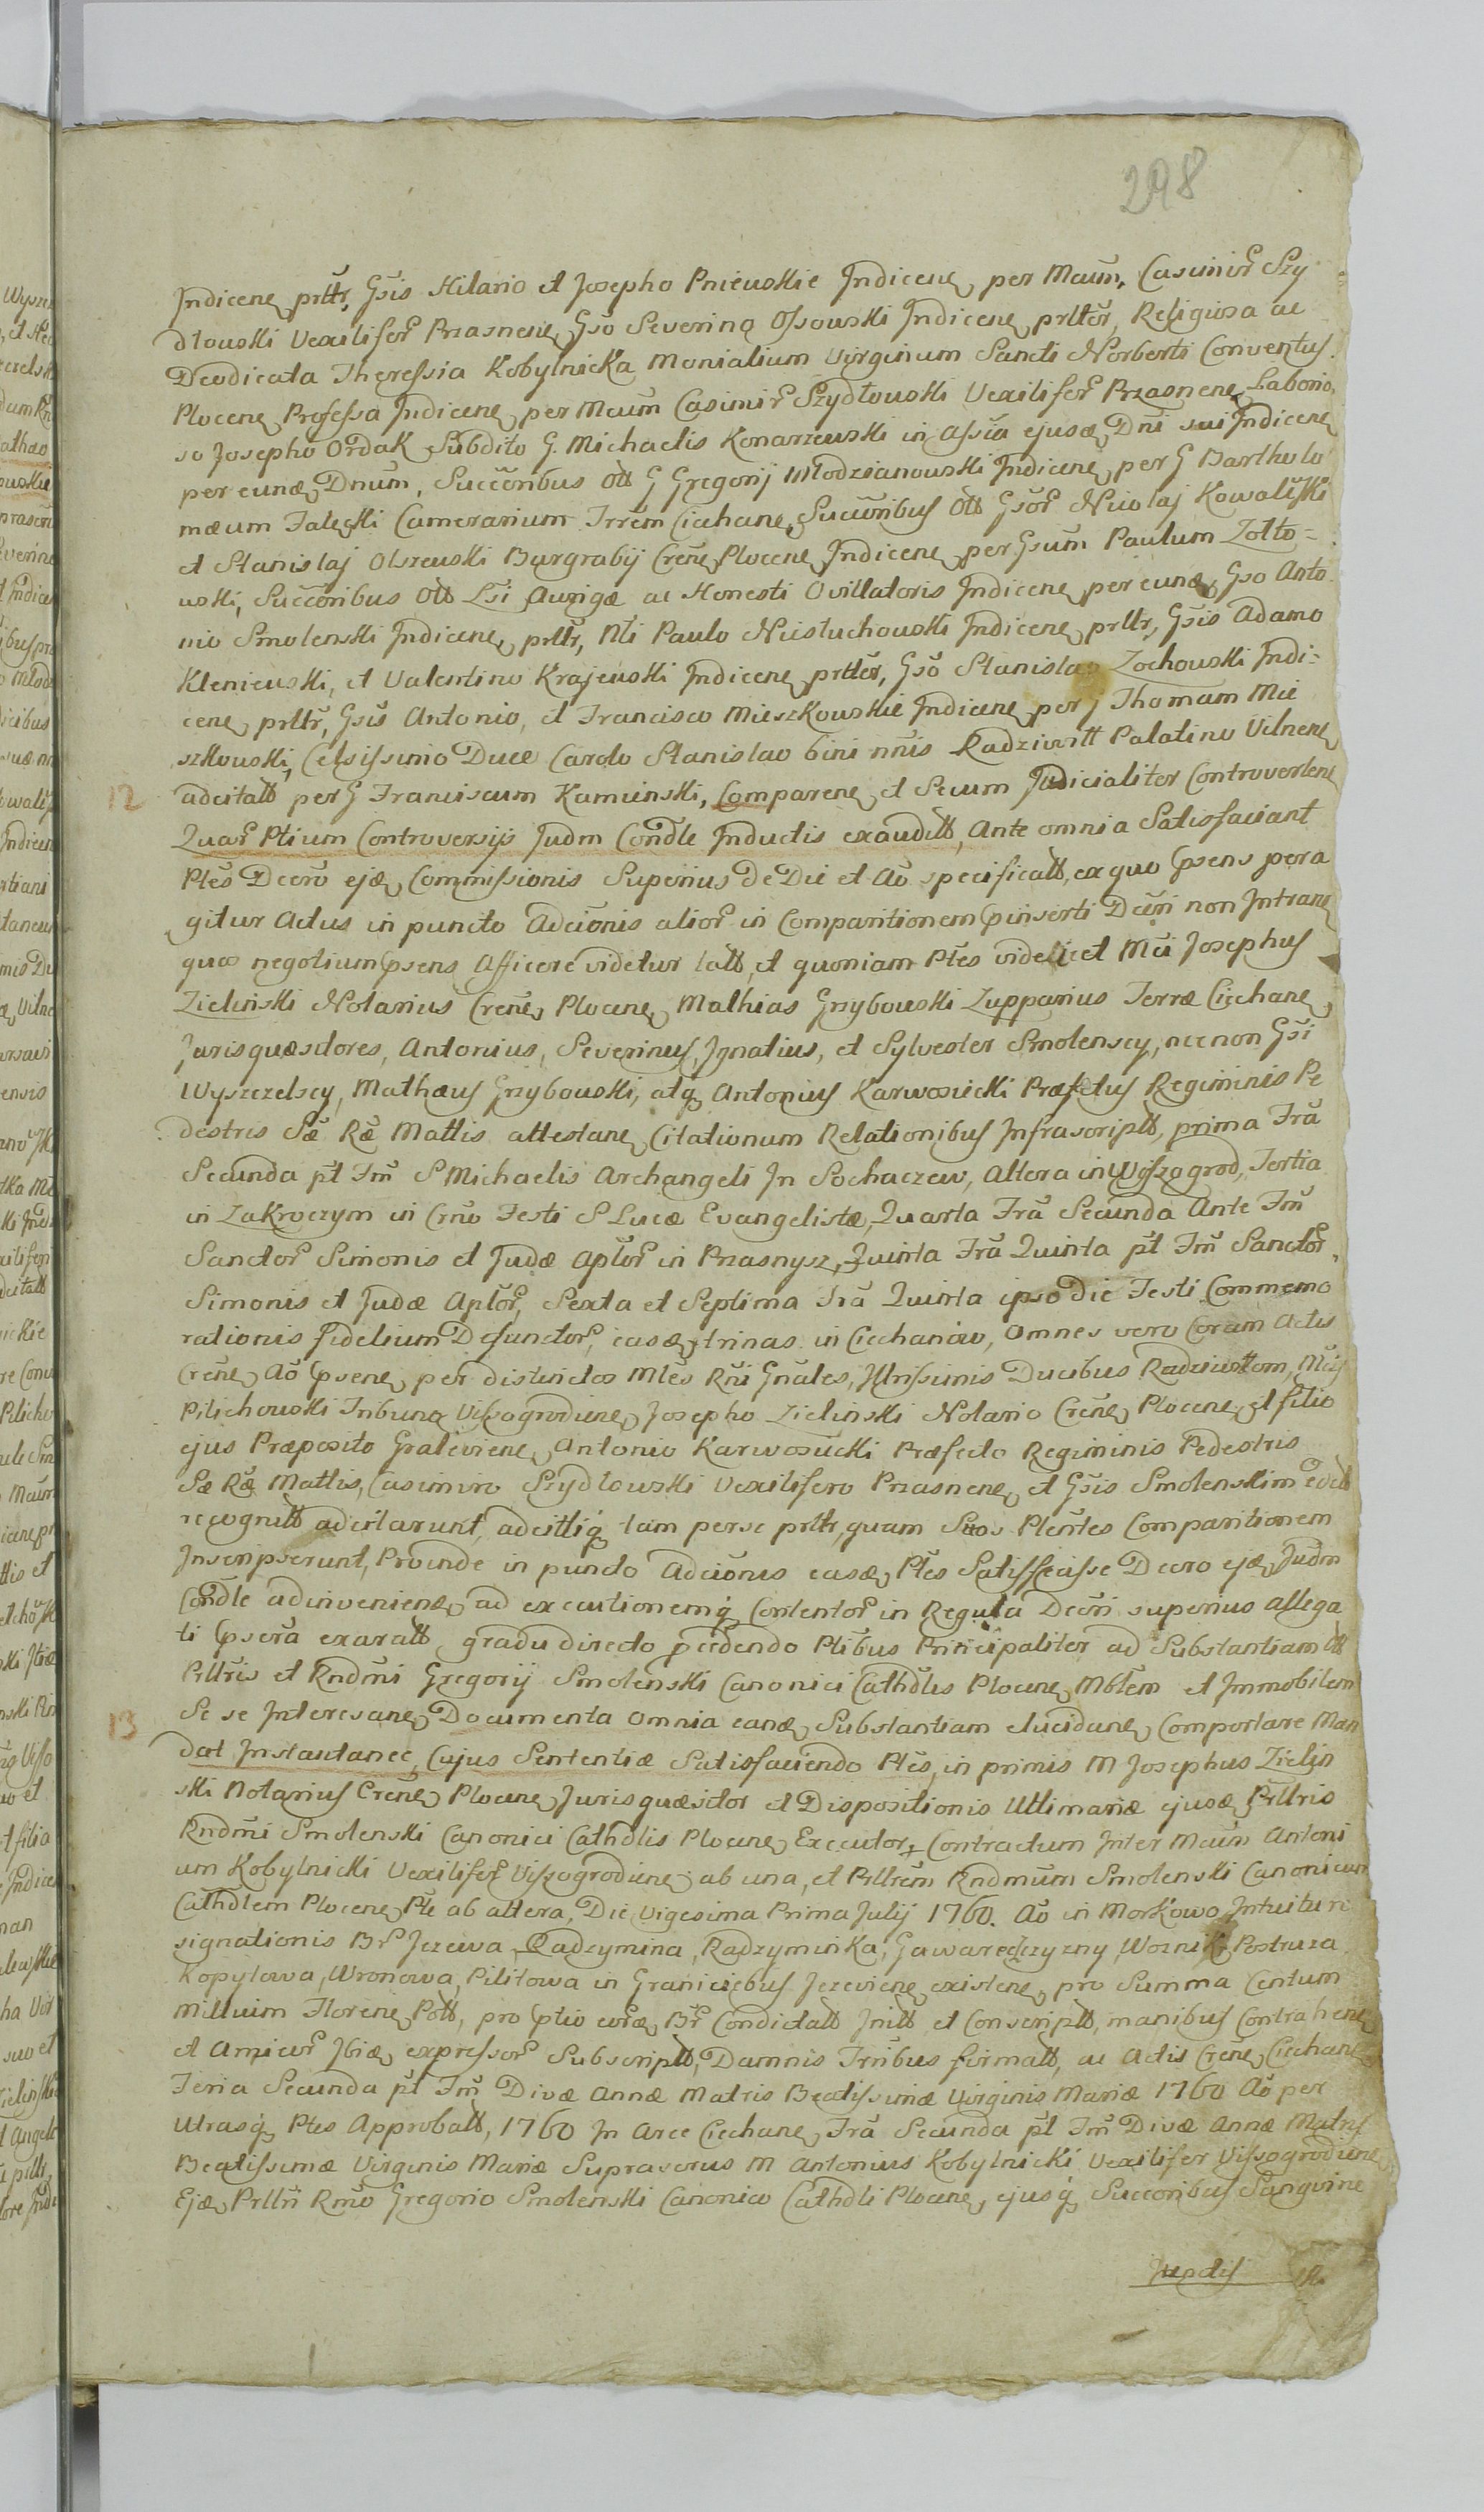 298
Indicene prltr, Gsis Hilario et Josepho Pniewskie Indicene per Mcum, Casimir Szy
dłowski Vexilifer Prasnene, Gso Severino Ossowski Indicene prlter, Religiosa ac
Deodicata Theressia Kobylnicka Monialium Virginum Sancti Norberti Conventus
Plocene Professa Indicene per Mcum Casimir Szydłowski Vexilifer Przasnene, Laborio
so Josepho Ordak Subdito G. Michaelis Konarzewski in assia ejusdē Dni sui Indicene
per eundē Dnum, Succoribus ott G Gregorij Młodzianowski Indicene per G Bartholo
mæum Falęcki Camerarium Trrēm Ciechane, Succoribus ott Gsor Nicolaj Kowalski
et Stanislaj Olszewski Burgrabij Crene Plocene Indicene per Gsum Paulum Zołto=
wski, Succoribus ott Lsi Aurigæ ac Honesti Ovillatoris Indicene per eundē, Gso Anto
nio Smolenski Indicene prltr, Nti Paulo Niestuchowski Indicene prltr, Gsis Adamo
Kleniewski, et Valentino Krajewski Indicene prlter, Gso Stanislao Zochowski Indi=
cene prltr, Gsis Antonio, et Francisco Mieszkowskie Indicene per J Thomam Mie
szkowski, Celsissimo Duce Carolo Stanislao bini nnis Radziwiłł Palatino Vilnene
12 adcitatt per G Franciscum Kaminski, Comparene et Secum Judicialiter Controvertene
Quar Ptium Controversijs Judm Condle Inductis exauditt, Ante omnia Satisfaciant
Ptes Decro ejdē Commissionis Superius de Die et Ao specificatt, ex quo Psens pera
gitur Actus in puncto Adcionis alior in Comparitionem pinserti Decri non Intrane
quos negotium Psens Afficere videtur latt, et quoniam Ptes videlicet Mci Josephus
Zieliński Notarius Crene Plocene, Mathias Grzybowski Zupparius Terræ Ciechane,
Jurisquæsitores, Antonius, Severinus, Ignatius, et Sylvester Smolenscy, necnon Gsi
Wyszczelscy, Mathæus Grzybowski, atq Antonius Karwosiecki Præfectus Regiminis Pe
destris Sæ Ræ Mattis attestane Citationum Relationibus Infrascriptt, prima Fra
Secunda pt Fm S Michaelis Archangeli In Sochaczew, Altera in Wyszogrod, Tertia
in Zakroczym in Crno Festi S Lucæ Evangelistæ, Quarta Fra Secunda Ante Fm
Sanctor Simonis et Judæ Aptor in Prasnysz, Quinta Fra Quinta pt Fm Sanctor
Simonis et Judæ Aptor, Sexta et Septima Fra Quinta ipso Die Festi Commemo
rationis fidelium Defunctor, easdē trinas in Ciechanów, Omnes vero Coram Actis
Crene Ao Psene per distinctos Mles Rni Gnales, Illrissimis Ducibus Radziwiłłom, Mcis
Pilichowski Tribuno Vissogrodiene, Josepho Zielinski Notario Crene Plocene, et filio
ejus Præposito Graleviene, Antonio Karwosiecki Præfecto Regiminis Pedestris
Sæ Ræ Mattis, Casimiro Szydłowski Vexilifero Prasnene, et Gsis Smolenskim edett
recognitt adcitarunt, adcittiq tam per se prltr, quam Suos Plentes Comparitionem
Inscripserunt, Proinde in puncto Adcionis easdē Ptes Satisfecisse Decro ejdē Judm
Condle adinveniene, ad executionemq Contentor in Regula Decri superius allega
ti Psera exaratt, gradu directo pcedendo Ptibus Principaliter ad Substantiam ott
Prltris et Rndmi Gregorij Smolenski Canonici Cathdlis Plocene, Mbtem et Immobilem
13 Se se Interesane, Documenta omnia eandē Substantiam elucidane Comportare Man
dat Instantanee, Cujus Sententiæ Satisfaciendo Ptes, in primis M Josephus Zielin
ski Notarius Crene Plocene Jurisquæsitor et Dispositionis Ultimariæ ejusdē Prltris
Rndmi Smolenski Canonici Cathdlis Plocene Executor, Contractum Inter Mcum Antoni
um Kobylnicki Vexilifer Vissogrodiene ab una, et Prltrem Rndmum Smolenski Canonicum
Cathdlem Plocene Pte ab altera, Die Vigesima Prima Julij 1760. Ao in Morkowo, Intuitu re
signationis Br Jezewa, Radzymina, Radzyminka, Gawaredczyzny, Woznik, Postruza
Kopytowa, Wronowa, Pilitowa in Graniciebus Jezeviene existene, pro Summa Centum
millium Florene Pott, pro Ptio eordē Br Condictatt Initt et Conscriptt, manibus Contrahene
et Amicor Ibidē expressor Subscriptt, Damnis Trribus firmatt, ac Actis Crene Ciechane
Feria Secunda pt Fm Divæ Annæ Matris Beatissimæ Virginis Mariæ 1760 Ao per
Utrasq Ptes Approbatt, 1760 In Arce Ciechane, Fra Secunda pt Fm Divæ Annæ Matris
Beatissimæ Virginis Mariæ Suprascrius M Antonius Kobylnicki Vexilifer Vissogrodiene
Ejdē Prltri Rmo Gregorio Smolenski Canonico Cathdli Plocene, ejusq Succoribus Sangvine